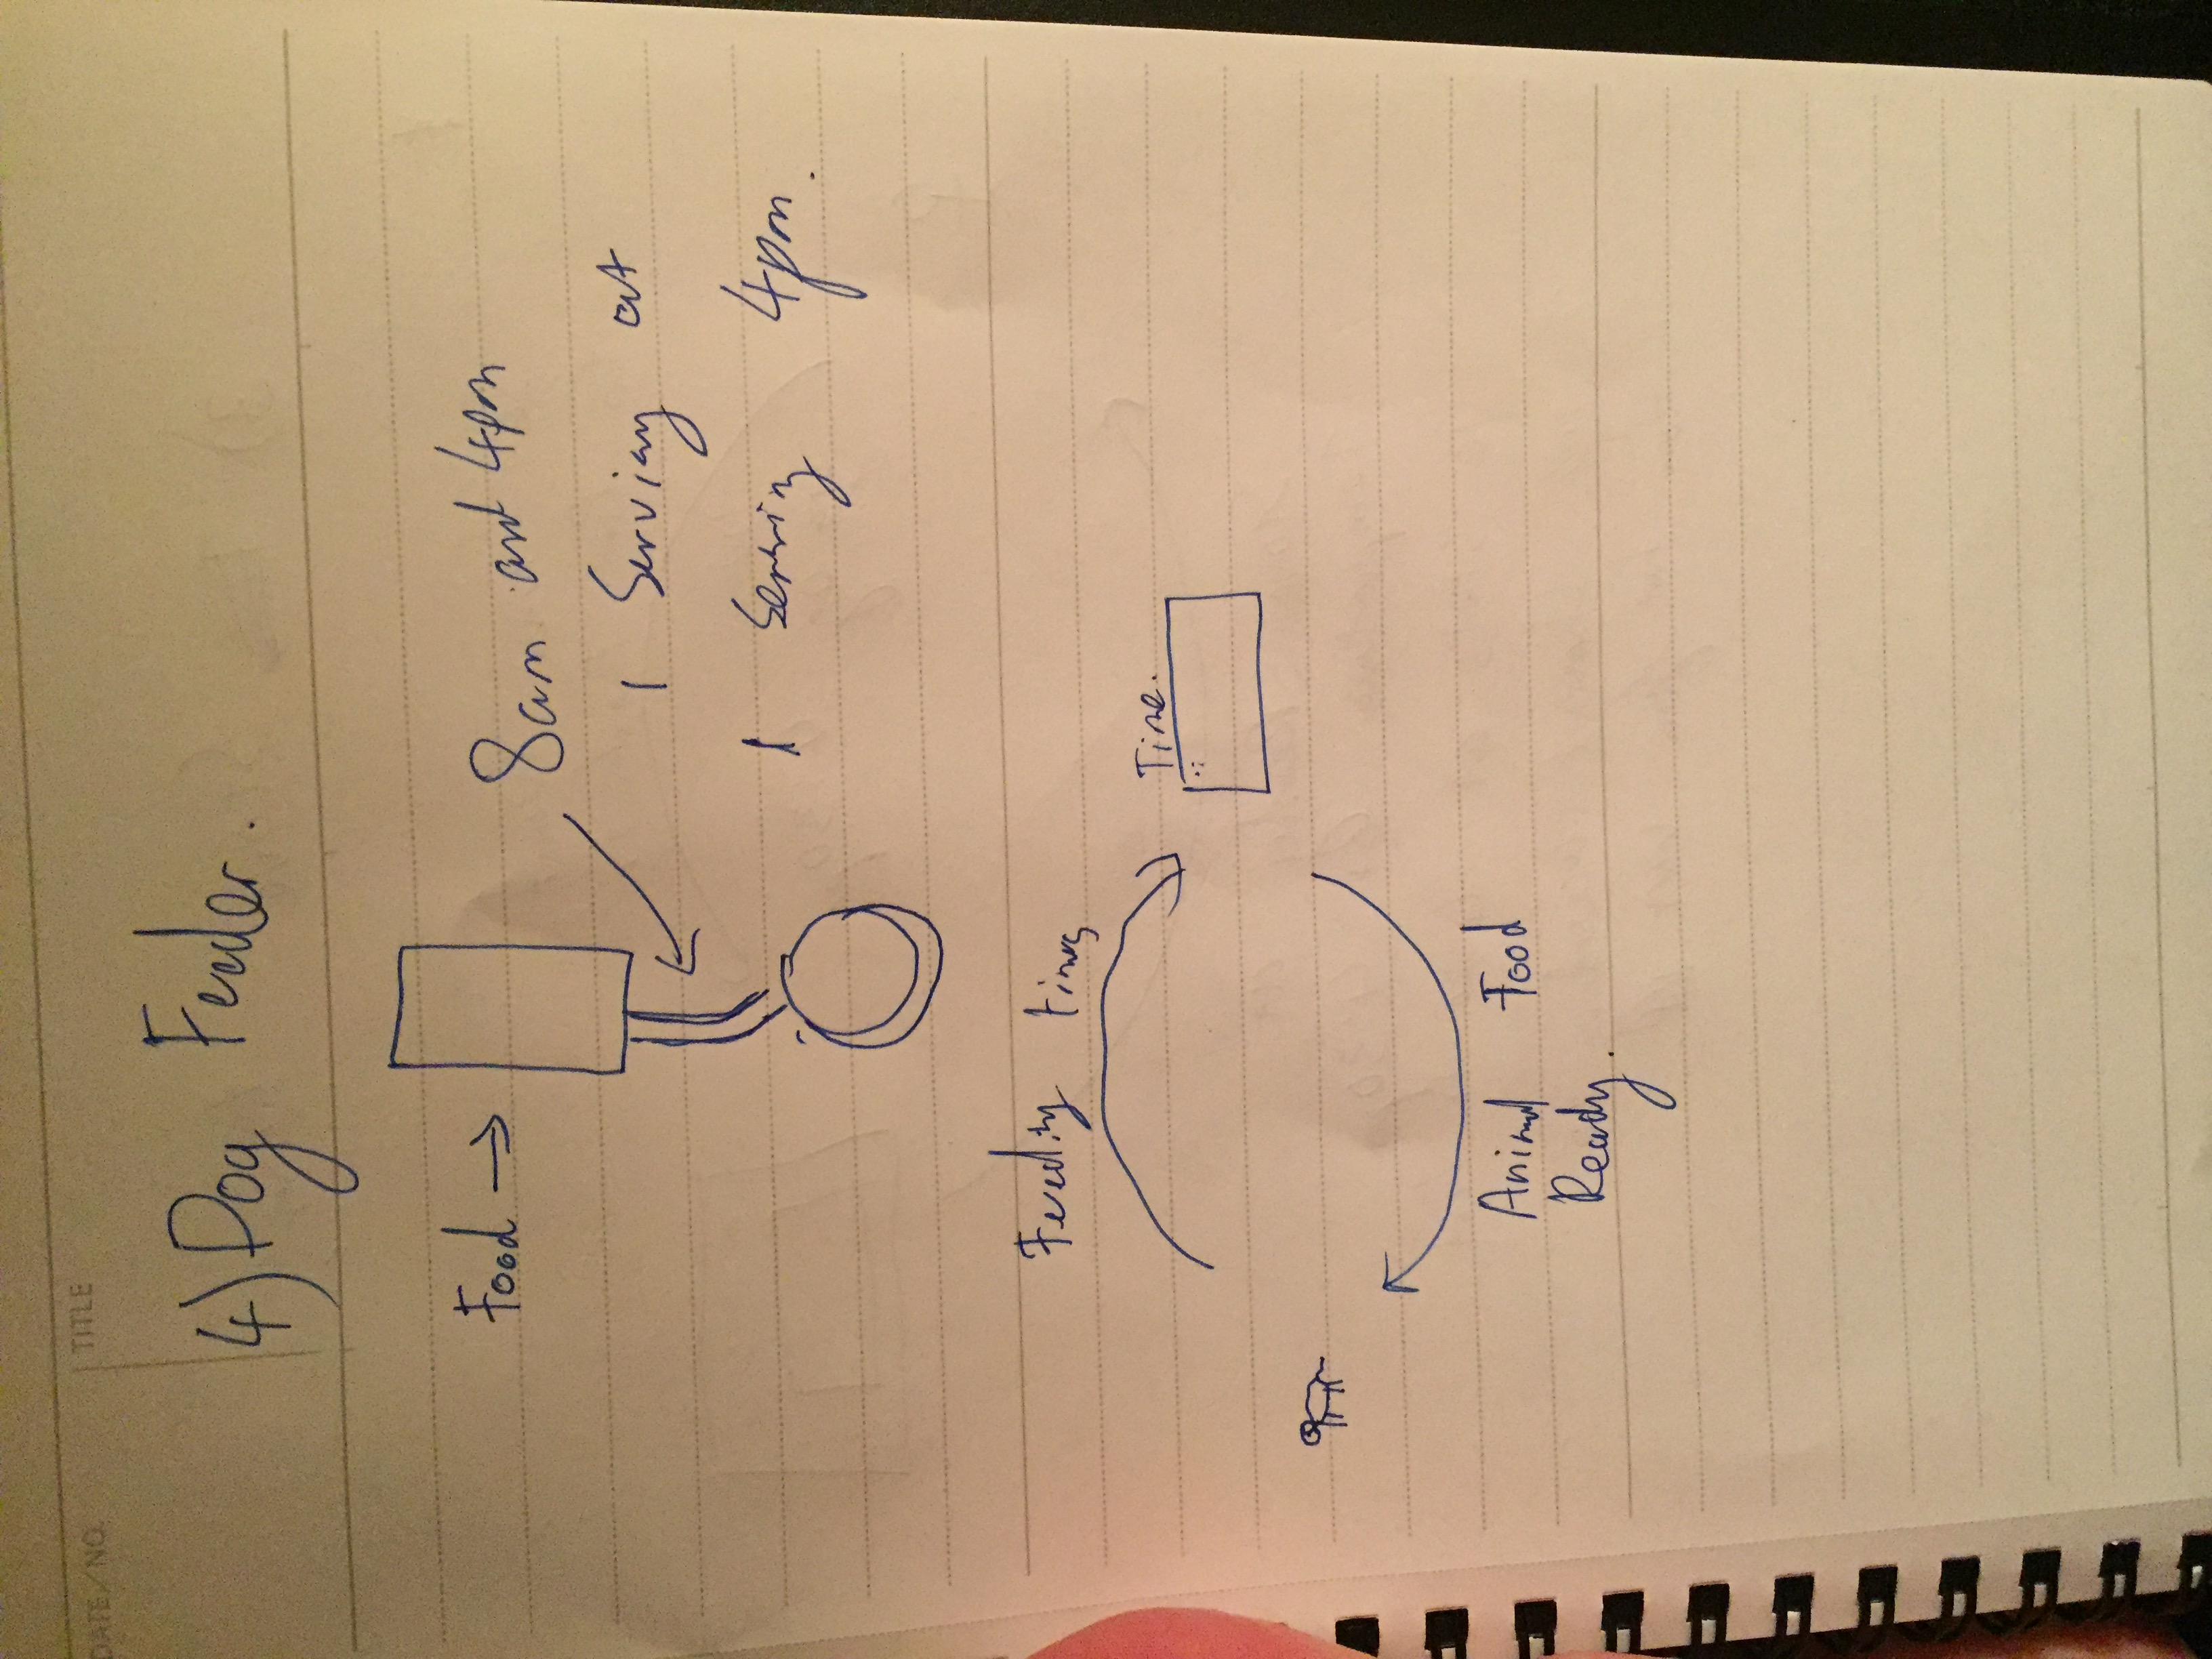 DATE/NO.
TITLE
4) Dog Feeder.
Food →
8am and 4pm
1 Serving at
1 Serving 4pm.
Feeding times
Time.
Animal Food
Ready.